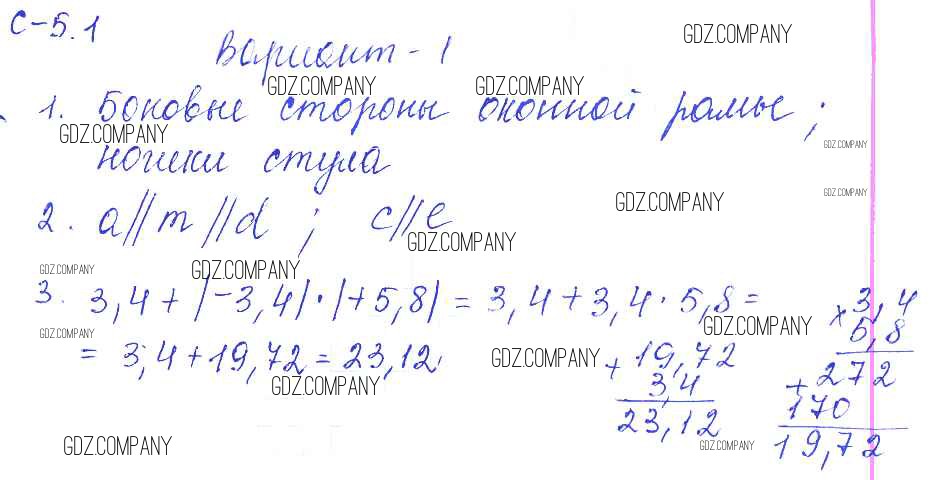 С-5.1
GDZ.COMPANY
Вариант-1
GDZ.COMPANY GDZ.COMPANY
1. Боковые стороны оконной рамы;
GDZ.COMPANY
GDZ.COMPANY
ножки стула
GDZ.COMPANY
GDZ.COMPANY
2. a//m//d ; c//e
GDZ.COMPANY
GDZ.COMPANY GDZ.COMPANY
3. 3,4+|-3,4|·|+5,8| = 3,4+3,4·5,8=
× 3,4
5,8
GDZ.COMPANY
GDZ.COMPANY
= 3,4+19,72=23,12.
GDZ.COMPANY
+ 19,72
3,4
23,12
+ 272
170
19,72
GDZ.COMPANY
GDZ.COMPANY
GDZ.COMPANY